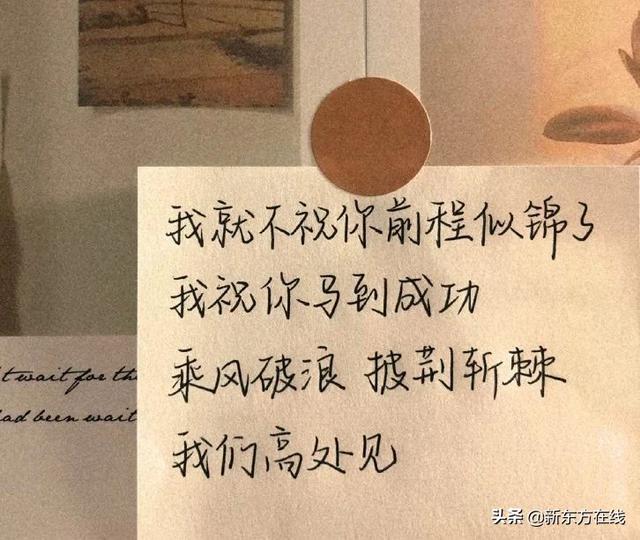 我就不祝你前程似锦了
我祝你马到成功
乘风破浪 披荆斩棘
我们高处见
t wait for th
had been wait
头条 @新东方在线